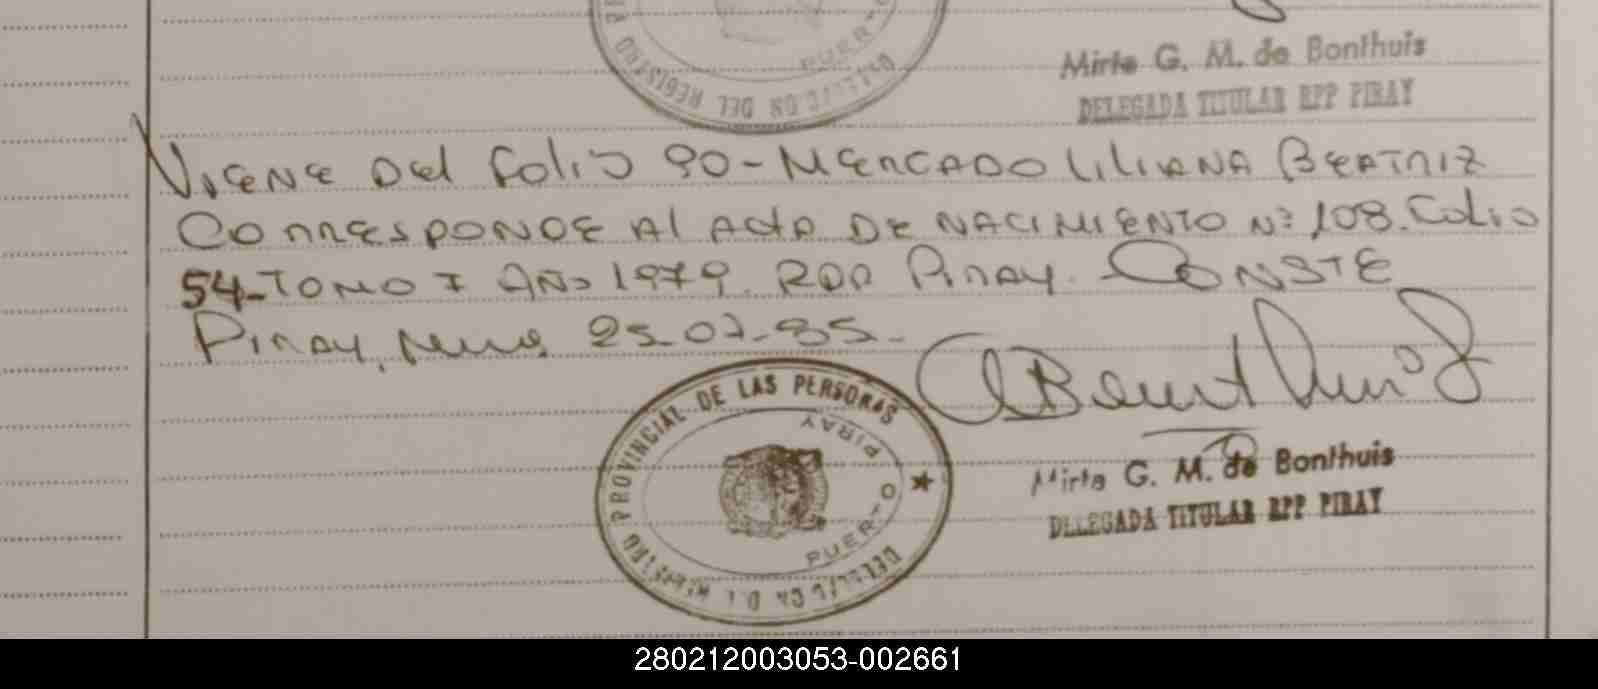 Mirta G. M. de Bonthuis
DELEGADA TITULAR RPP PIRAY
PUERTO
DELEGACION DEL REGISTRO
Viene Del Folio 90-Mercado Liliana Beatriz
Corresponde Al Acta De Nacimiento Nº 108. Folio
54-Tomo I Año 1979. RPP Piray. Conste
Piray, Mnes, 25-07-85.-
REGISTRO PROVINCIAL DE LAS PERSONAS
PUERTO PIRAY
Mirta G. M. de Bonthuis
DELEGADA TITULAR RPP PIRAY
280212003053-002661